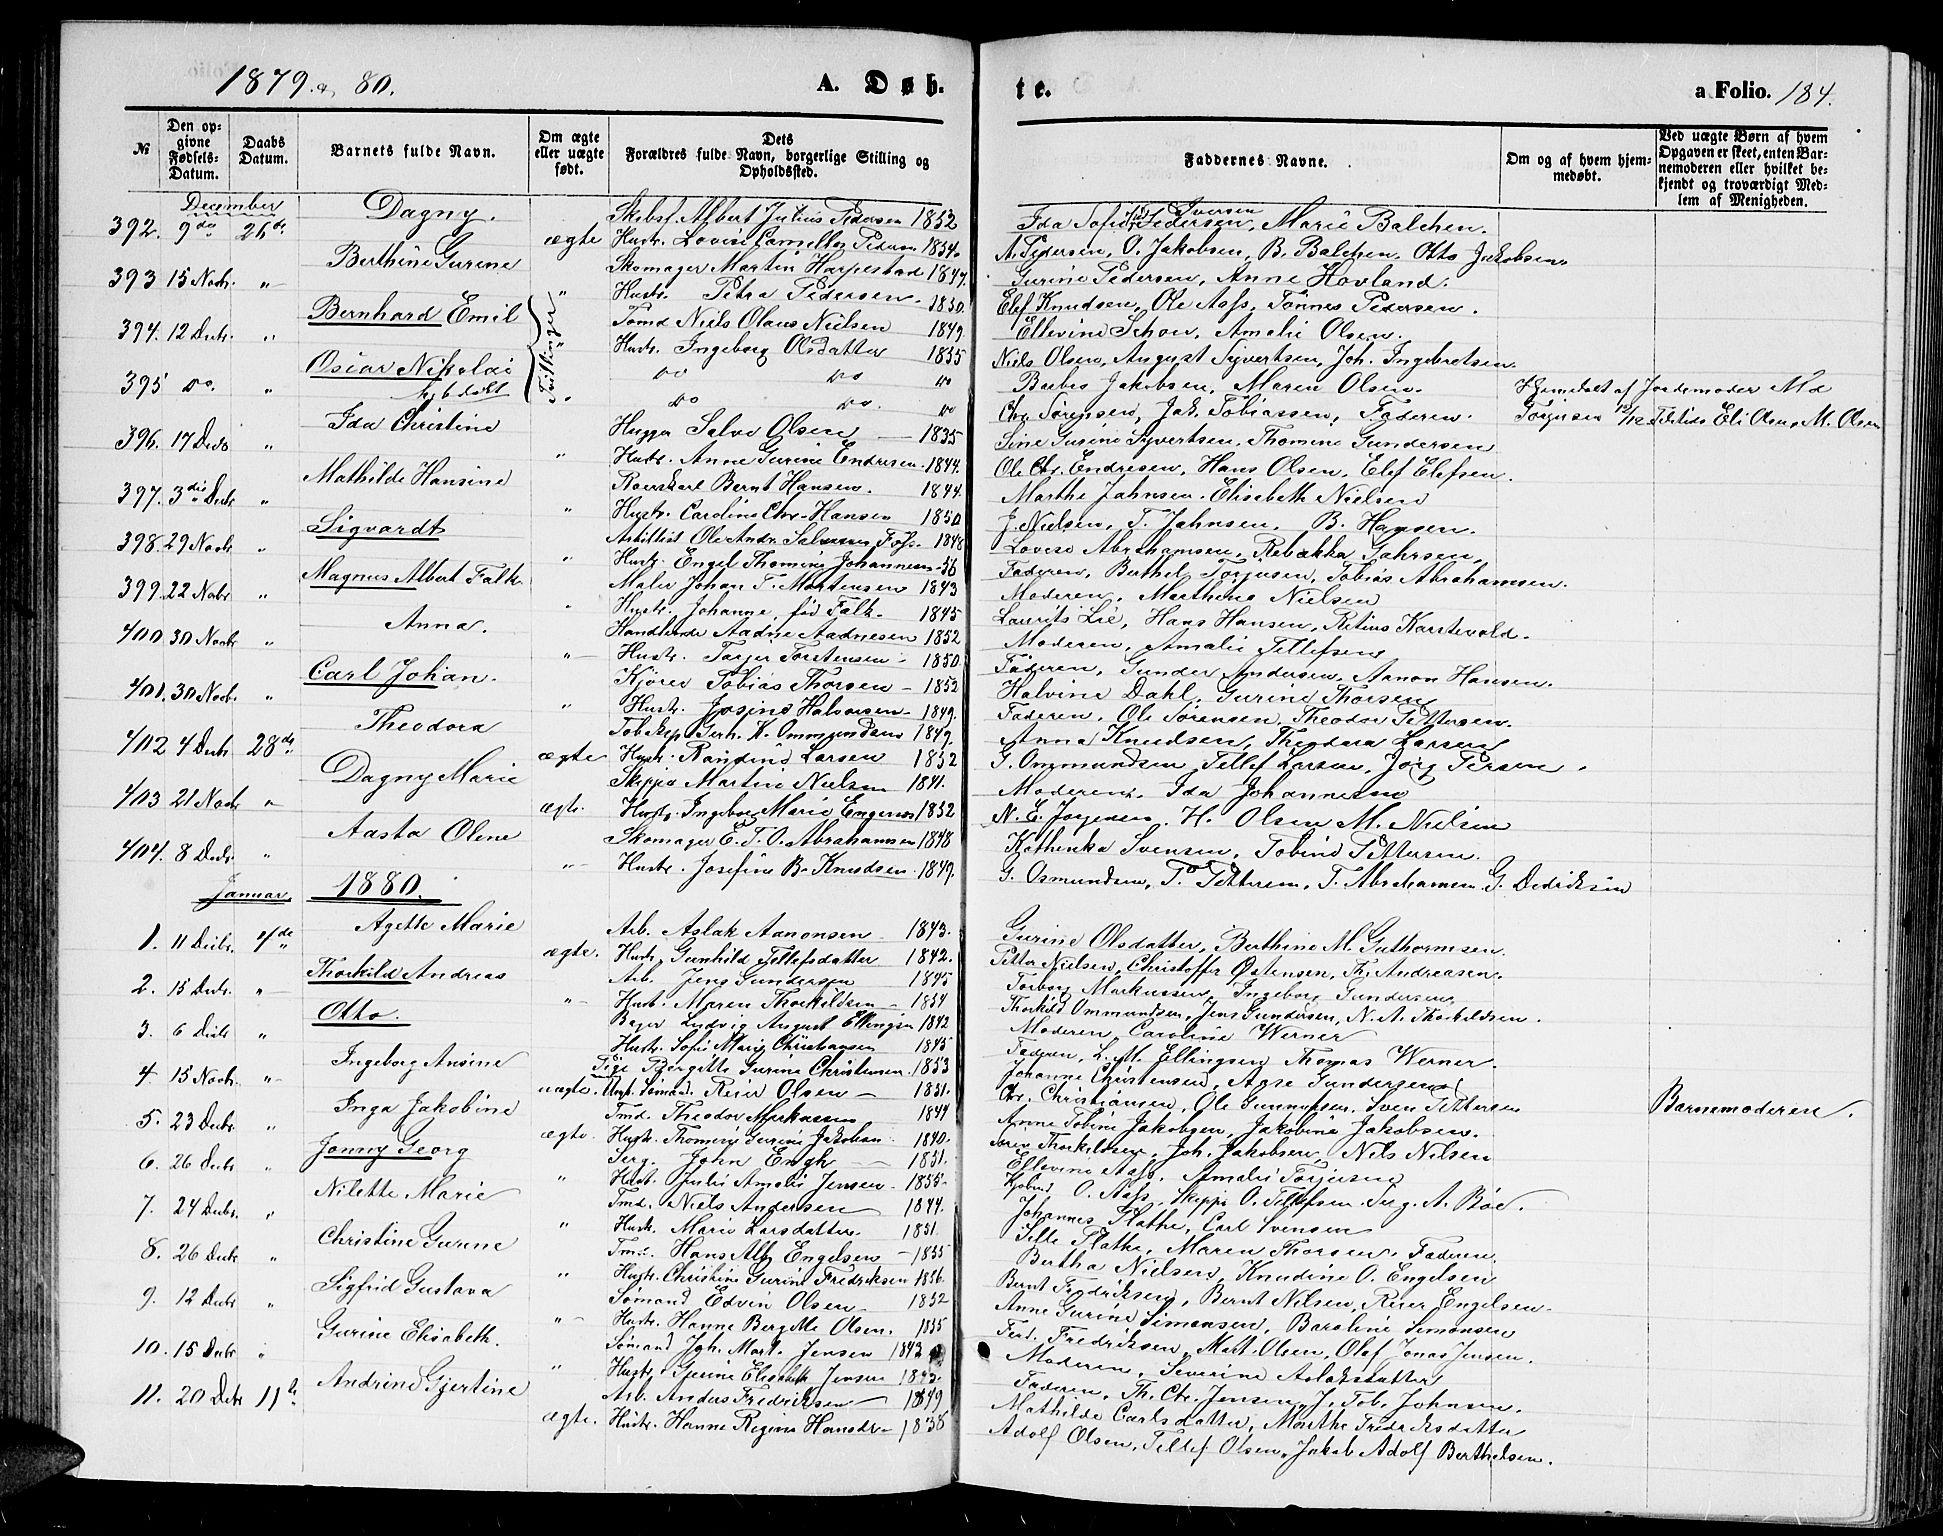 1879 & 80.
A. Døb
te.
a Folio. 184.
№
Den opgivne Fødsels-Datum.
Daabs Datum.
Barnets fulde Navn.
Om ægte eller uægte født.
Dets Forældres fulde Navn, borgerlige Stilling og Opholdssted.
Faddernes Navne.
Om og af hvem hjemmedøbt.
Ved uægte Børn af hvem Opgaven er skeet, enten Barnemoderen eller hvilket bekjendt og troværdigt Medlem af Menigheden.
December
392. 9de 26de Dagny. ægte Albert Julius Pedersen 1852
Hustr. Lovise Pedersen 1854.
Ida Sofie Pedersen, Iversen Marie Balchen.
A. Pedersen, O. Jakobsen, B. Balchen, Otto Jakobsen.
393 15 Novbr. " Berthine Gurine " Skomager Martin Harpestad 1847.
Hustr. Petra Pedersen. 1850.
Gurine Pedersen, Anne Hovland.
Elef Knudsen, Ole Aass, Tönnes Pedersen.
394. 12 Decbr. " Bernhard Emil Tvillinger Tømd Niels Olaus Nielsen 1849
Hustr. Ingeborg Olsdatter 1855
Ellevine Schou, Amalie Olsen.
Niels Olsen, August Syvertsen, Joh. Ingebretsen.
395 do. " Oscar Nikolai do do do
do do. do
Jakobsen, Maren Olsen.
Chr. Sørensen, Jak. Tobiassen, Faderen.
Hjemdøbt af Jordemoder
396. 17 Decb " Ida Christine " Salve Olsen 1835
Hustr. Anne Gurine Endresen. 1844.
Sine Gurine Syvertsen, Thomine Gundersen
Ole Chr. Endresen, Hans Olsen, Elef Elefsen.
397. 3die Decbr " Mathilde Hansine " Bernt Hansen. 1844.
Hustr. Caroline Chr. Hansen 1850
Marthe Jahnsen, Elisabeth Nielsen
J. Nielsen, T. Jahnsen, B. Hansen.
398. 29 Novbr. " Sigvardt " Ole Andr. 1848
Hustr. Engel Thomine Johannesen 56
Lovise Abrahamsen, Rebekka
Faderen, Berthel Torjusen, Tobias Abrahamsen.
399. 22 Novbr " Magnus Albert Falk. " Maler Johan T. Mortensen 1843
Hustr. Johanne, fød Falk. 1845
Moderen, Marthine Nielsen
Laurits Lie, Hans Hansen,
400. 30 Novbr " Anna. " Handlende Aadne Aadnesen 1852
Hustr. Torstensen 1850
Moderen, Amalie Tellefsen
Faderen, Gunder Andersen, Aanon Hansen.
401. 30 Novbr. " Carl Johan. " Tobias Thorsen 1852
Hustr. Josine Halvorsen 1849.
Halvine Dahl, Gurine Thorsen
Faderen, Ole Sørensen, Theodor Pettersen.
402 4 Decbr 28de Theodora ægte Gerh. K. Ommundsen 1849.
Hustr. Randine Larsen 1852
Anna Knudsen, Theodora Larsen
G. Ommundsen, Tellef Larsen,
403 21 Novbr " Dagny Marie ægte. Martin Nielsen 1841.
Hustr. Ingeborg Marie 1852
Moderen. Ida Johannesen
N. E. H. Olsen M. Nielsen
404. 8 Decbr. " Aasta Oline " Skomager E. T. O. Abrahamsen 1848
Hustr. Josefine B. Knudsen. 1849.
Kathinka Svensen, Tobine Pettersen.
G. Osmundsen, T. Pettersen, T. Abrahamsen G. Dedeksen
Januar. 1880.
1. 11 Decbr. 4de Agethe Marie ægte. Arb. Aslak Aanonsen 1843.
Hustr. Gunhild Tellefsdatter 1842.
Gurine Olsdatter, Berthine M. Guthormsen.
Petter Nielsen, Christoffer Østensen, Th. Andreasen.
2. 15 Decbr. " Thorkild Andreas " Arb. Jens Gundersen 1845
Hust. Maren Thorkildsen 1854
Torborg Markussen, Ingeborg Gundersen
Thorkild Ommundsen, Jens Gundersen, N. A. Thorkildsen.
3. 6 Decbr " Otto. Bager Ludvig August Ellingsen 1842
Hustr. Sofie Marie Christiansen 1845
Moderen, Caroline Werner
Faderen, L. M. Ellingsen Thomas Werner.
4. 15 Novbr. " Ingeborg Ansine uægte. Pige Bergitte Gurine Christensen. 1853
Ungk. Sömand. Reier Olsen 1851.
Johanne Christensen, Gundersen
Chr. Christiansen, Ole Gunnufsen, Sven Pettersen
Barnemoderen.
5. 23 Decbr. " Inga Jakobine ægte. Tmd. Theodor Markussen 1844
Hustr. Thomine Gurine Jakobsen 1840.
Anne Tobine Jakobsen, Jakobine Jakobsen.
Thorkildsen, Joh. Jakobsen, Nils Nilsen
6. 26 Decbr " Jonny Georg " Serg. John Engh 1851.
Hustr. Julie Amalie Jensen 1855.
Ellevine Aass, Amalie Torjusen
O. Aass, O. Tellefsen Serg. A. Bøe.
7. 24 Decbr. " Nilette Marie " Tmd. Niels Andersen 1844.
Hustr. Marie Larsdatter. 1851.
Johannes Flathe, Carl Svensen
Flathe, Maren Thorsen. Faderen.
8. 26 Decbr " Christine Gurine " Tmd. Hans Alb. Engelsen 1855
Hustr. Christine Gurine Fredriksen 1856.
Bertha Nielsen, Knudine O. Engelsen
Bernt Fredriksen, Bernt Nilsen, Reier Engelsen
9. 12 Decbr " Sigfrid Gustava " Sømand Edvin Olsen 1852
Hustr. Hanne Bergitte Olsen. 1855
Anne Gurine Simonsen, Baroline Simonsen
Ferd. Fredriksen, Mart. Olsen, Olaf Jonas Jensen.
10. 15 Decbr " Gurine Elisabeth. " Sömand Joh. Mart. Jensen 1843
Hustr. Gurine Elisabeth Jensen 1843.
Moderen, Severine Aslaksdatter
Faderen, Th. Chr. Jensen, J. Tob. Johnsen.
11. 20 Decbr 11te Andrine Gjertine ægte. Arb. Anders Fredriksen 1849
Hustr. Hanne Regine Hansdr. 1838
Mathilde Carlsdatter, Marthe Fredriksdatter
Adolf Olsen, Tellef Olsen, Jakob Adolf Berthelsen.